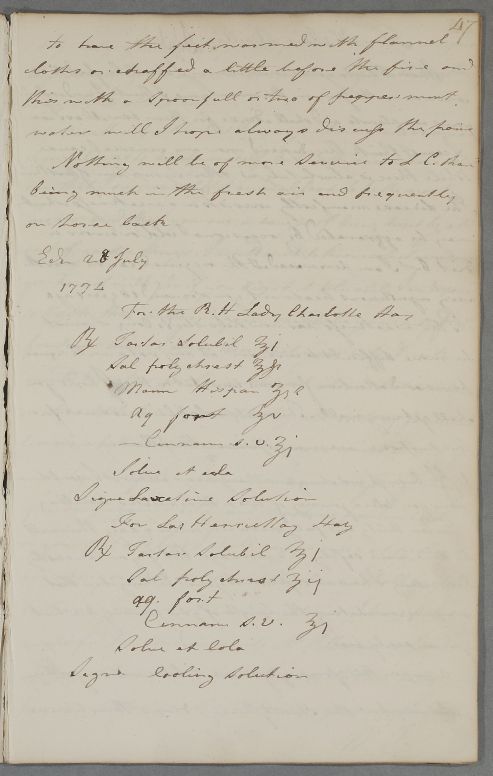 47
to have the feet warmed with flannel
cloths or chaffed a little before the fire and
this with a spoonfull or two of peppermint
water will I hope always discuss the pain
Nothing will be of more service to L C. than
being much in the fresh air and frequently
on horse back
Edr 28 July
1774
For the R. H Lady Charlotte Hay
Rx Tartar Solubil ʒj
Sal polychrest
Mann Hispan
Aq font ℥v
Cinnam s. v. ℥j
Solve et cola
Signe Laxative Solution
For Lady Henrietta Hay
Rx Tartar Solubil ʒj
Sal polychrest ʒij
aq. font
Cinnam s. v. ℥j
Solve et Cola
Signe Cooling Solution